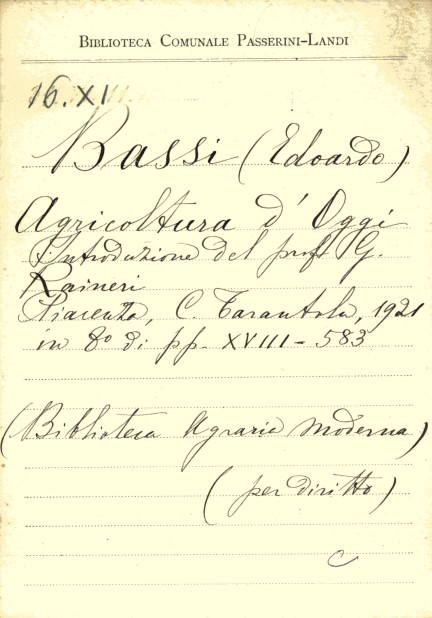 BIBLIOTECA COMUNALE PASSERINI-LANDI
16.XI
Bassi (Edoardo)
Agricoltura d'Oggi
Introduzione del prof. G.
Raineri
Piacenza, C. Tarantola, 1921
in 8º di pp. XVIII-583
(Biblioteca Agraria Moderna)
(per diritto)
C